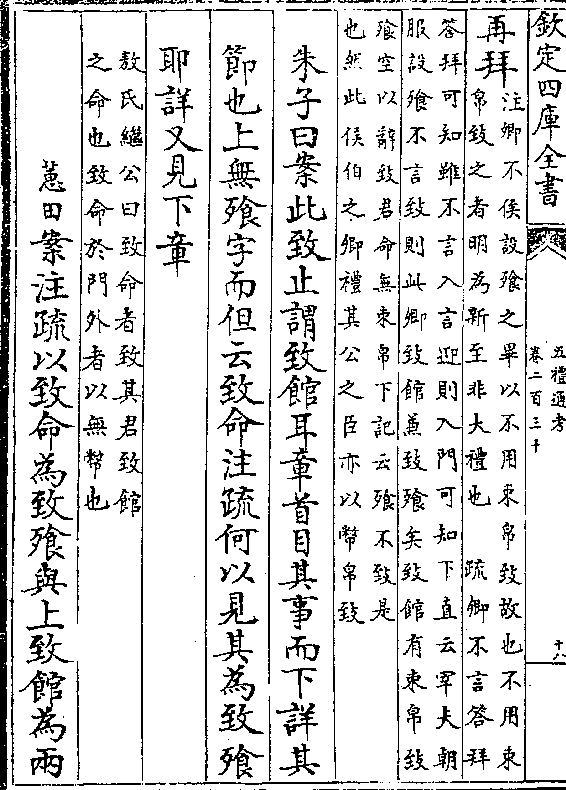 欽定四庫全書
五禮通考
卷二百三十
十八
再拜
注卿不俟設飱之畢以不用束帛致故也不用束
帛致之者明為新至非大禮也 疏卿不言答拜
答拜可知雖不言入言迎則入門可知下直云宰夫朝
服設飱不言致則此卿致館兼致飱矣致館有束帛致
飱空以辭致君命無束帛下記云飱不致是
也然此侯伯之卿禮其公之臣亦以幣帛致
朱子曰案此致止謂致館耳章首目其事而下詳其
節也上無飱字而但云致命注疏何以見其為致飱
耶詳又見下章
敖氏繼公曰致命者致其君致館
之命也致命於門外者以無幣也
蕙田案注疏以致命為致飱與上致館為兩